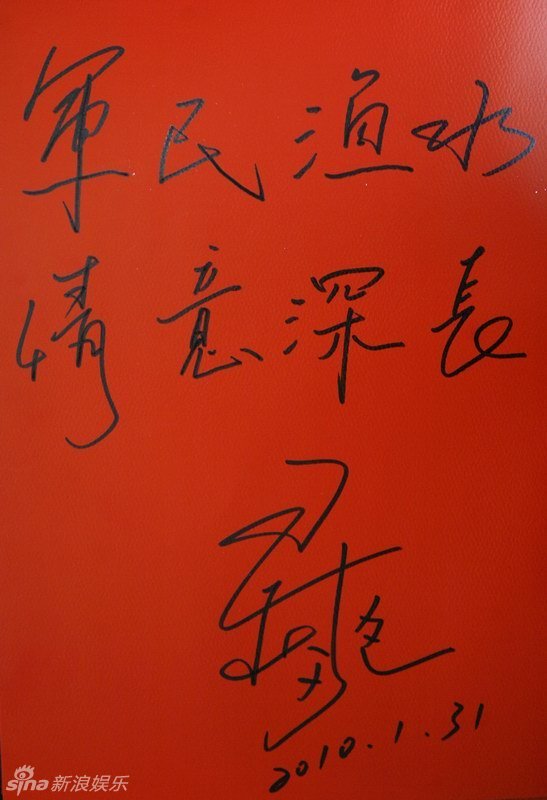 軍民渔水
情意深長
2010.1.31
sina新浪娱乐